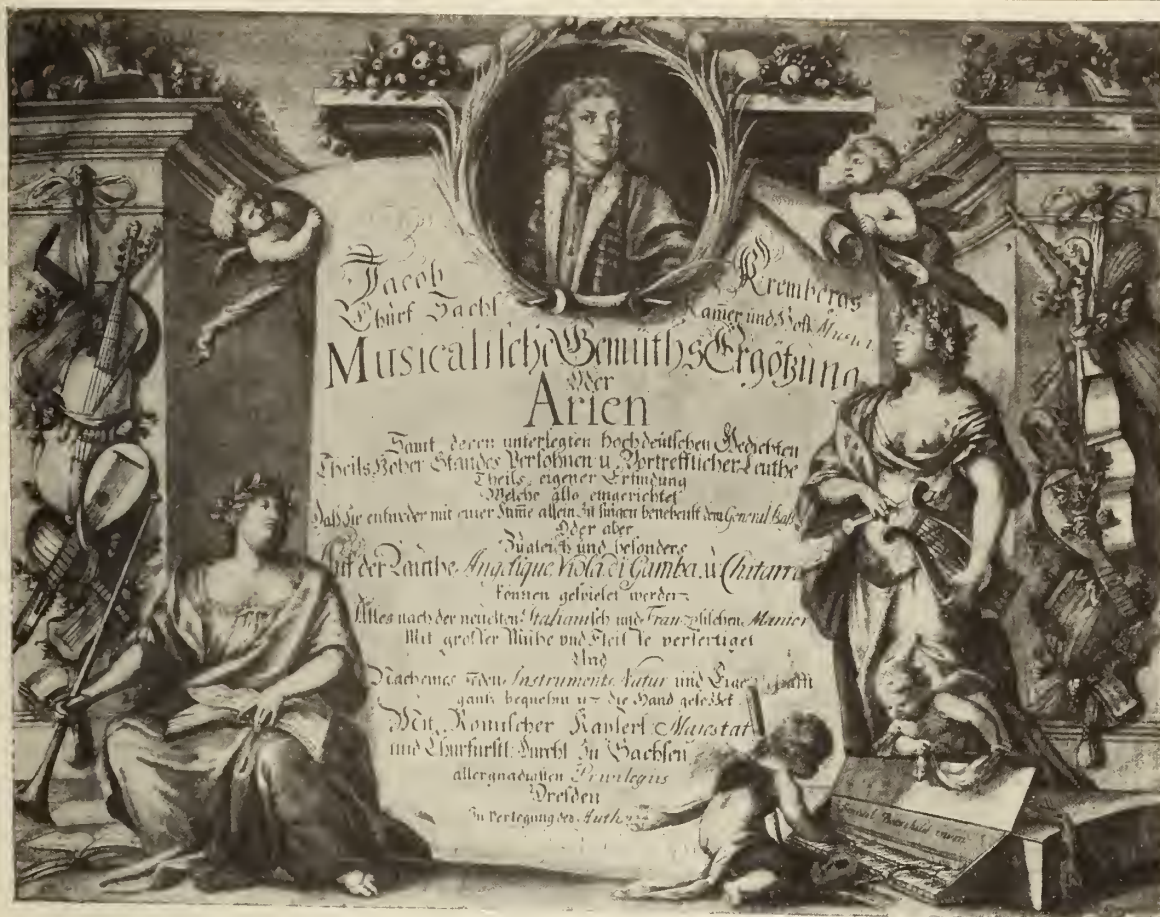 Jacob Krembergs
Churf Sachs Kam̅er und Hoff Musici
Musicalische Gemüths Ergötzung
Oder
Arien
Samt deren unterlegten hochdeutschen Gedichten
Theils Hoher Standes Persohnen u. Vortrefflicher Leuthe
Theils eigener Erfindung
Welche also eingerichtet
Daß sie entweder mit einer Stim̅e allein zu singen benebenst dem General Baß
Oder aber
Zugleich und besonders
Auf der Lauthe, Angelique, Viola di Gamba, u. Chitarra
können gespielet werden
Alles nach der neuesten Italianisch und Französischen Manier
Mit grosser Mühe und Fleisse verfertiget
Und
Nach eines jeden Instruments Natur und Eigenschafft
gantz bequehm in die Hand gesetzet
Mit Römischer Kayserl Maiestat
und Churfürstl: Durchl zu Sachsen
allergnädigsten Privilegiis
Dresden
In Verlegung des Auth
Samuel Bottschild inven